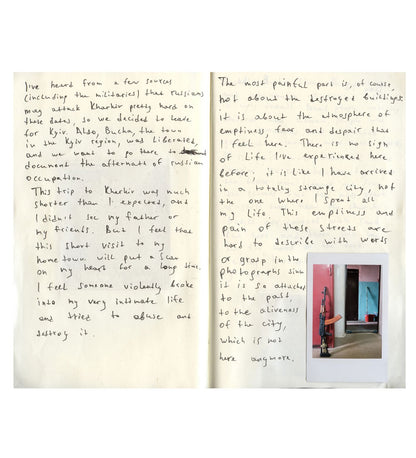 I've heard from a few sources
(including the militaries) that russians
may attack Kharkiv pretty hard on
these dates, so we decided to leave
for Kyiv. Also, Bucha, the town
in the Kyiv region, was liberated,
and we want to go there to
document the aftermath of russian
occupation.
This trip to Kharkiv was much
shorter than I expected, and
I didn't see my father or
my friends. But I feel that
this short visit to my
home town will put a scar
on my heart for a long time.
I feel someone violently broke
into my very intimate life
and tried to abuse and
destroy it.
The most painful part is, of course,
not about the destroyed buildings.
it is about the atmosphere of
emptiness, fear and despair that
I feel here. There is no sign
of life I've experienced here
before; it is like I have arrived
in a totally strange city, not
the one where I spent all
my life. This emptiness and
pain of these streets are
hard to describe with words
or grasp in the
photographs since
it is so attached
to the past,
to the aliveness
of the city,
which is not
here anymore.